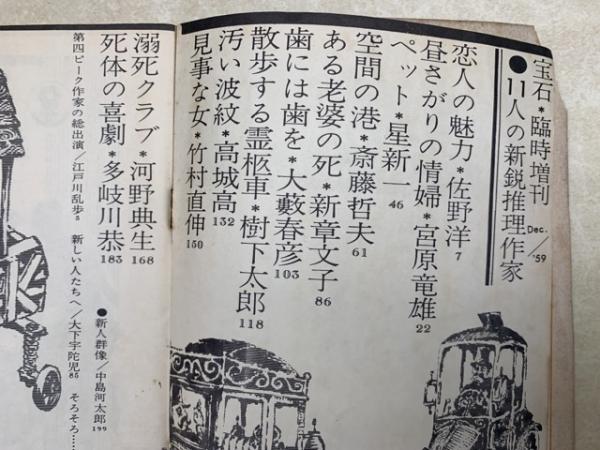 宝石*臨時増刊 Dec./'59
●11人の新鋭推理作家
恋人の魅力*佐野洋 7
昼さがりの情婦*宮原竜雄 22
ペット*星新一 46
空間の港*斎藤哲夫 61
ある老婆の死*新章文子 86
歯には歯を*大藪春彦 103
散歩する霊柩車*樹下太郎 118
汚い波紋*高城高 132
見事な女*竹村直伸 150
溺死クラブ*河野典生 168
死体の喜劇*多岐川恭 183
●新人群像/中島河太郎 199
第四ピーク作家の総出演/江戸川乱歩 5 新しい人たちへ/大下宇陀児 85 そろそろ……